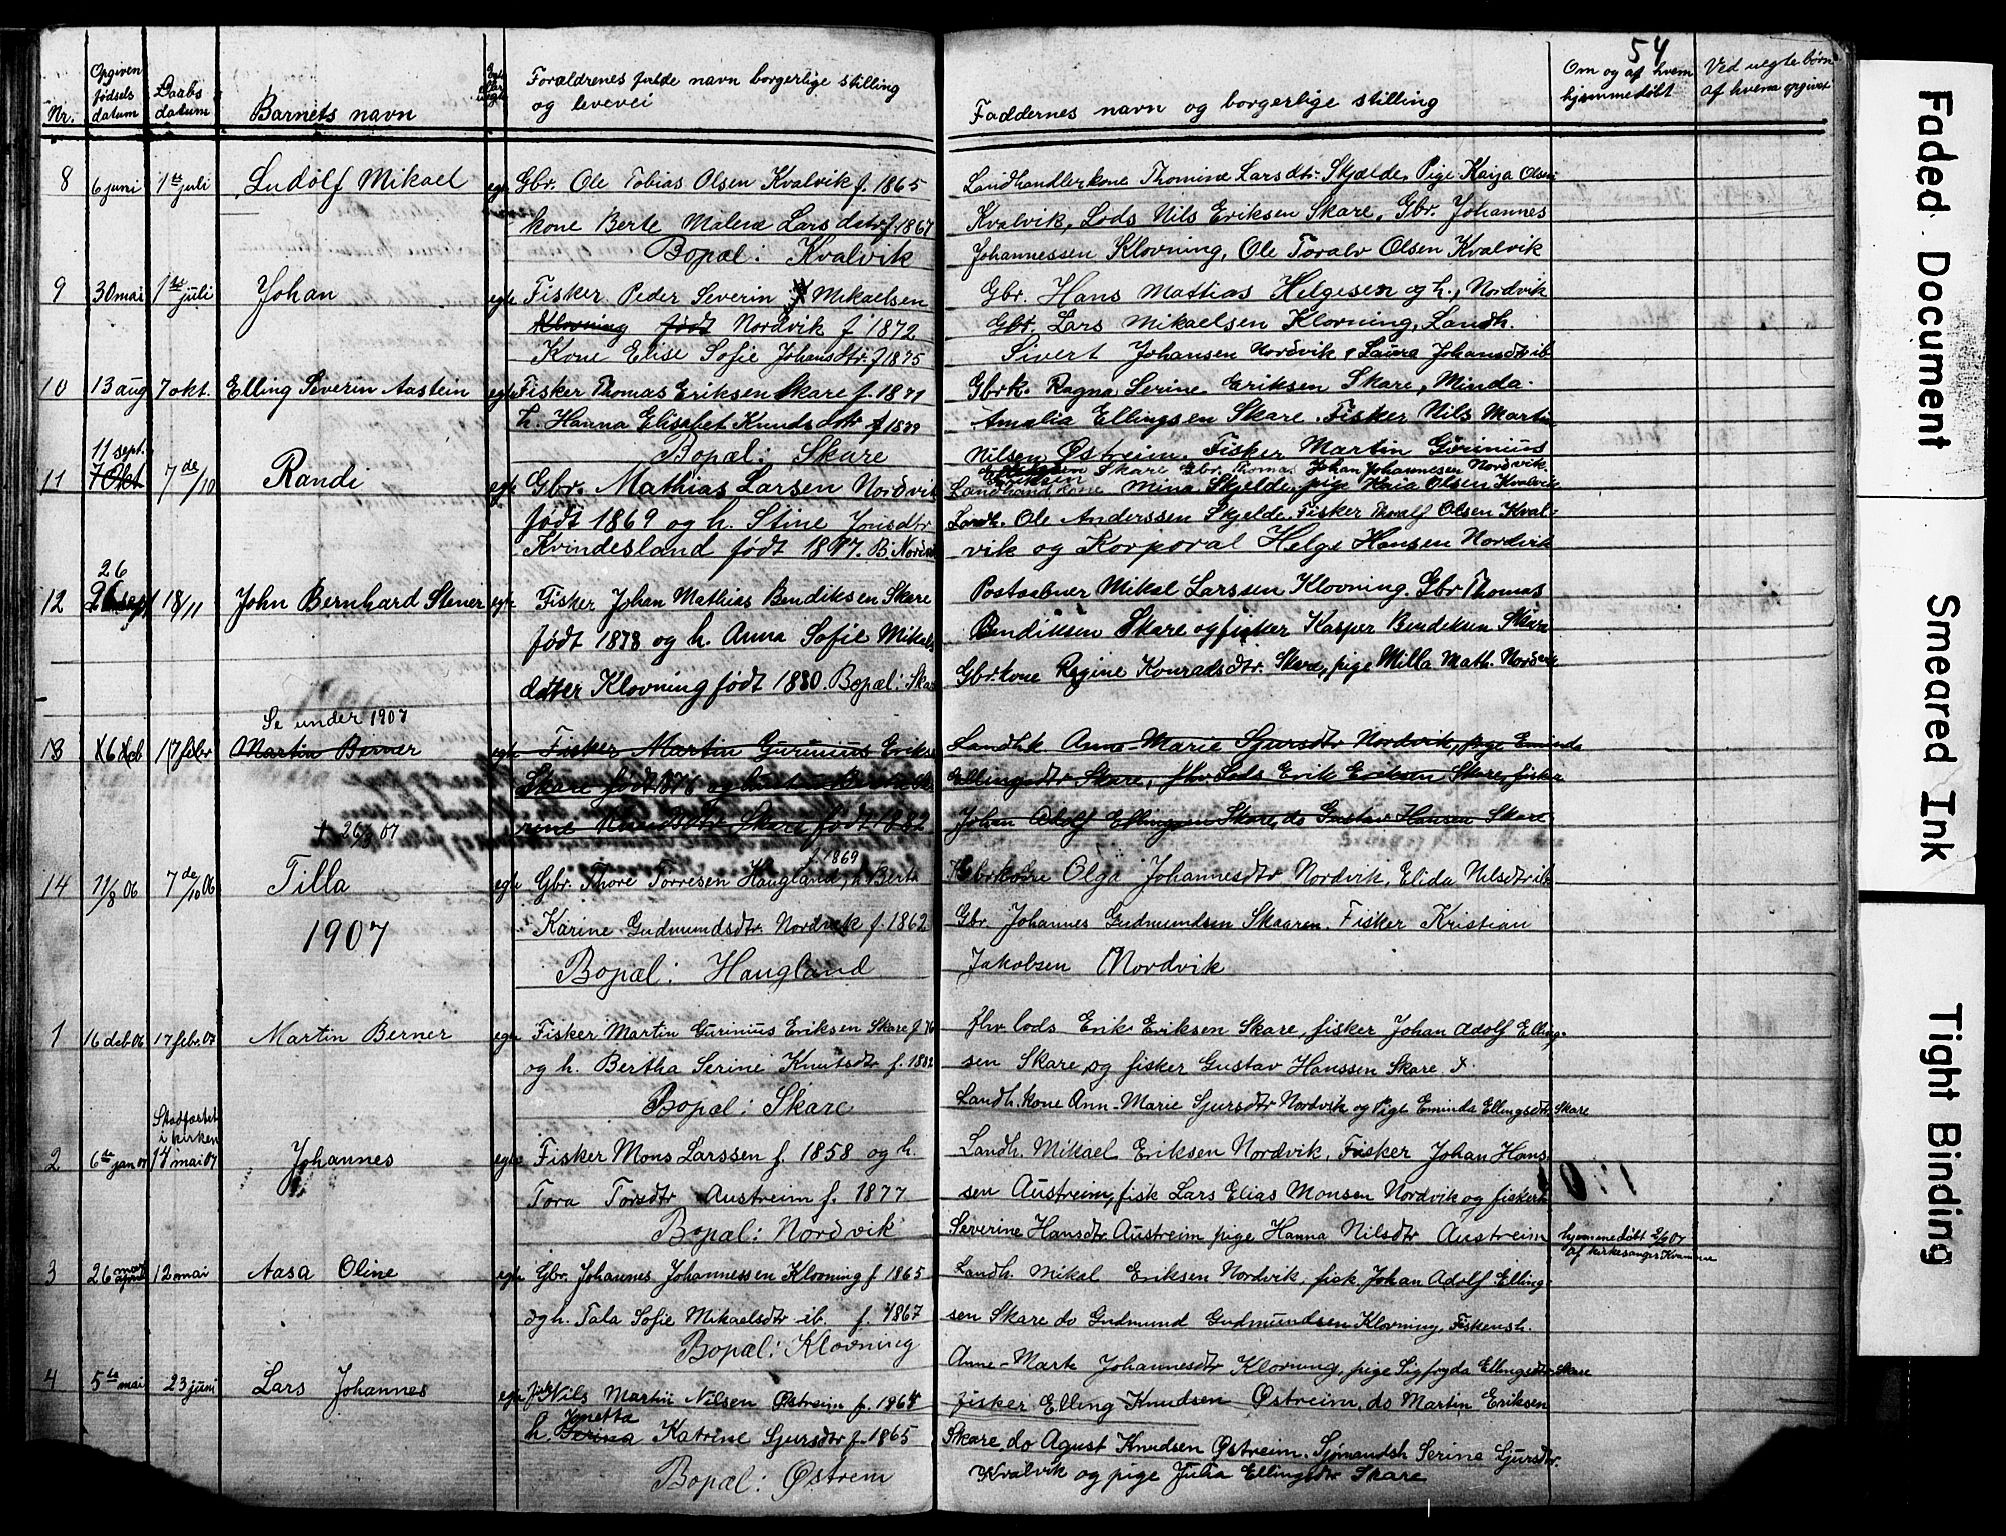 54
Nr.
Opgiven fødsels datum
Daabs datum
Barnets navn
Forældrenes fulde navn borgerlige stilling
og levevei
Faddernes navn og borgerlige stilling
Om og af hvem
hjemmedøbt
Ved uegte børn
af hvem opgivet
8 6 juni 1ste juli Ludolf Mikael egte Gbr. Ole Tobias Olsen Kvalvik f. 1865
kone Berte Malene Larsdatr f. 1867
Bopæl: Kvalvik
Landhandlerkone Thomine Larsdtr Skjælde, Pige Kaija Olsen
Kvalvik, Lods Nils Eriksen Skare, Gbr. Johannes
Johannessen Klovning, Ole Toralv Olsen Kvalvik
9 30 mai 1ste juli Johan egte Fisker Peder Severin Mikaelsen
Klovning født Nordvik f 1872
Kone Elise Sofie Johansdtr. f 1875
Gbr. Hans Mathias Helgesen og h., Nordvik
Gbr. Lars Mikaelsen Klovning, Landh.
Sivert Johansen Nordvik, Laura Johansdtr ib
10 13 aug 7 okt. Elling Severin Aastein egte Fisker Thomas Eriksen Skare f. 1871
h. Hanna Elisabet Knudsdtr f 1879
Bopæl: Skare
Gbrk. Ragna Serine Eriksen Skare, Minda
Amalia Ellingsen Skare. Fisker Nils Martin
Nilsen Østreim. Fisker Martin Gurinius
Eriksen Skare Gbr. Thomas Johan Johannesen Nordvik
11 11 sept. 7 Okt 7de/10 Randi egte Gbr. Mathias Larsen Nordvik
født 1869 og h. Stine Jonsdtr
Kvindesland født 1877. B: Nordv
Landhand kone Mina Skjelde, pige Kaia Olsen Kvalvik
Landh. Ole Anderssen Skjelde, Fisker Thoralf Olsen Kval-
vik og Korporal Helge Hansen Nordvik
12 26 26 sept 18/11 John Bernhard Stener egte Fisker Johan Mathias Bendiksen Skare
født 1878 og h. Anna Sofie Mikals
datter Klovning født 1880. Bopæl: Skare
Postaabner Mikal Larssen Klovning. Gbr Thomas
Bendiksen Skare og fisker Kasper Bendiksen Skare
Gbr. kone Regine Konradsdtr. Skare, pige Milla Math. Nordvik
Se under 1907
13 16 deb 17 febr Martin Berner egte Fisker Martin Gurinius Eriks
Skare født 1876 og
rine Knudsdtr Skare født 1882
Landh.k Anne-Marie Sjursdtr Nordvik, pige Eminda
Ellingsdtr Skare, fhv. Lods Erik Eriksen Skare, fisker
Johan Adolf Ellingsen Skare, do Gustav Hansen Skare
14 11/8 06 7de/10 06 Tilla egte Gbr. Thore Torresen Haugland, f. 1869 h. Berta
Karine Gudmundsdtr Nordvik f. 1862
Bopæl: Haugland
Gbrkone Olga Johannesdtr Nordvik, Elida Nilsdtr ib
Gbr. Johannes Gudmundsen Skaaren. Fisker Kristian
Jakobsen Nordvik
1907
1 16 deb 06 17 febr. 07 Martin Berner egte Fisker Martin Gurinius Eriksen Skare f 76
og h. Bertha Serine Knutsdtr f. 1882
Bopæl: Skare
fhv lods Erik Eriksen Skare, fisker Johan Adolf Elling-
sen Skare, og fisker Gustav Hanssen Skare
Landh. kone Ann-Marie Sjursdtr Nordvik og Pige Eminda Ellingsdtr Skare
2 6te jan 07 Stadfæstet i kirken 14 mai 07 Johannes egte Fisker Mons Larssen f. 1858 og h.
Tora Torsdtr Austreim f. 1877
Bopæl: Nordvik
Landh. Mikael Eriksen Nordvik, Fisker Johan Hans
sen Austreim, fisk Lars Elias Monsen Nordvik og fiskerh
Severine Hansdtr Austreim pige Hanna Nilsdtr Austreim
hjemmedøbt 2/6 07
af kirkesanger Kvamme
3 26 mars april 12 mai Aasa Oline egte Gbr. Johannes Johannessen Klovning f 1865
og h. Tala Sofie Mikaelsdtr ib. f. 1867
Bopæl: Klovning
Landh. Mikal Eriksen Nordvik, fisk. Johan Adolf Elling-
sen Skare do Gudmund Gudmundsen Klovning, Fiskersh.
Anne-Marte Johannesdtr Klovning, pige Sigfryda Ellingsdtr Skare
4 5te mai 23 juni Lars Johannes egte fisk Nils Martin Nilsen Østreim f. 1864
h. Jonetta Serina Katrine Sjursdtr f. 1865
Bopæl: Østrem
Fisker Elling Knudsen Østreim, do Martin Eriksen
Skare, do Agust Knudsen Østreim. Sjømandsh Serine Sjursdtr.
Kvalvik og pige Julia Ellingsdtr Skare
Faded Document
Smeared Ink
Tight Binding